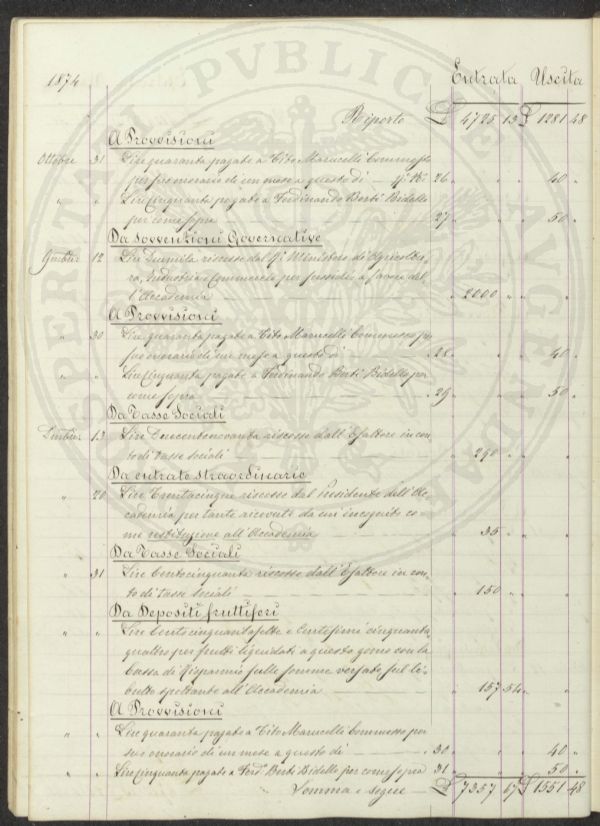 1874
Entrata Uscita
Riporto £ 4725 13 £ 1281 48
A Provvisioni
Ottobre 31 Lire quaranta pagate a Tito Marucelli Commesso
per suo onorario di un mese a questo dì 26 " " 40 "
" " Lire Cinquanta pagate a Ferdinando Berti Bidello
per come sopra 27 " " 50 "
Da Sovvenzioni Governative
9mbre 12 Lire Duemila riscosse dal R° Ministero di Agricoltu-
ra, Industria e Commercio per sussidio a favore del
l'Accademia " 2000 " " "
A Provvisioni
" 30 Lire quaranta pagate a Tito Marucelli Commesso per
suo onorario di un mese a questo dì 28 " " 40 "
" " Lire Cinquanta pagate a Ferdinando Berti Bidello per
come sopra 29 " " 50 "
Da Tasse Sociali
Xmbre 13 Lire Duecentonovanta riscosse dall'Esattore in con-
to di Tasse sociali " 290 " " "
Da entrate straordinarie
" 20 Lire Trentacinque riscosse dal Presidente dell'Ac-
cademia per tante ricevute da un incognito co-
me restituzione all'Accademia " 35 " " "
Da Tasse Sociali
" 31 Lire Centocinquanta riscosse dall'Esattore in con-
to di Tasse sociali " 150 " " "
Da Depositi fruttiferi
" " Lire Centocinquantasette e Centesimi cinquanta
quattro per frutti liquidati a questo giorno con la
Cassa di Risparmio sulle somme versate sul li-
bretto spettante all'Accademia " 157 54 " "
A Provvisioni
" " Lire quaranta pagate a Tito Marucelli Commesso per
suo onorario di un mese a questo dì 30 " " 40 "
" " Lire Cinquanta pagate a Ferd° Berti Bidello per come sopra 31 " " 50 "
Somma e segue £ 7357 67 £ 1551 48
PROSPERITATI PVBLICAE AVGENDAE